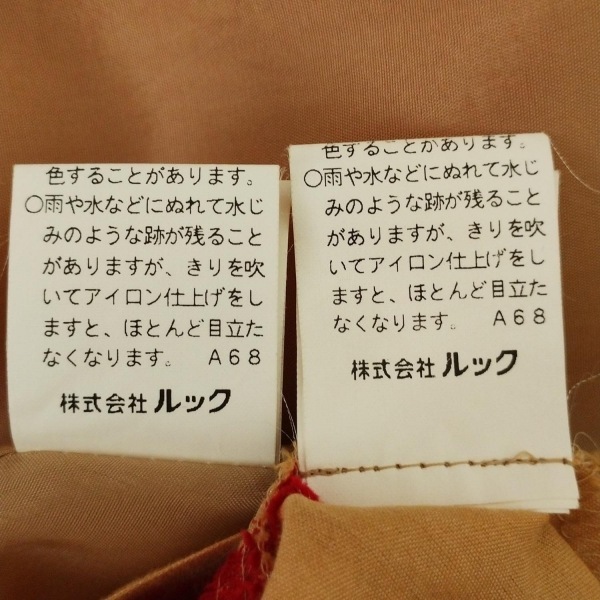 色することがあります。
○雨や水などにぬれて水じ
みのような跡が残ること
がありますが、きりを吹
いてアイロン仕上げをし
ますと、ほとんど目立た
なくなります。 A68
株式会社 ルック
色することがあります。
○雨や水などにぬれて水じ
みのような跡が残ること
がありますが、きりを吹
いてアイロン仕上げをし
ますと、ほとんど目立た
なくなります。 A68
株式会社 ルック